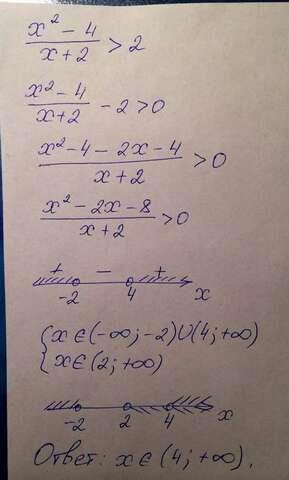 (x² - 4)/(x + 2) > 2
(x² - 4)/(x + 2) - 2 > 0
(x² - 4 - 2x - 4)/(x + 2) > 0
(x² - 2x - 8)/(x + 2) > 0
+ - +
-2 4 x
{ x ∈ (-∞; -2) ∪ (4; +∞)
{ x ∈ (2; +∞)
-2 2 4 x
Ответ: x ∈ (4; +∞).